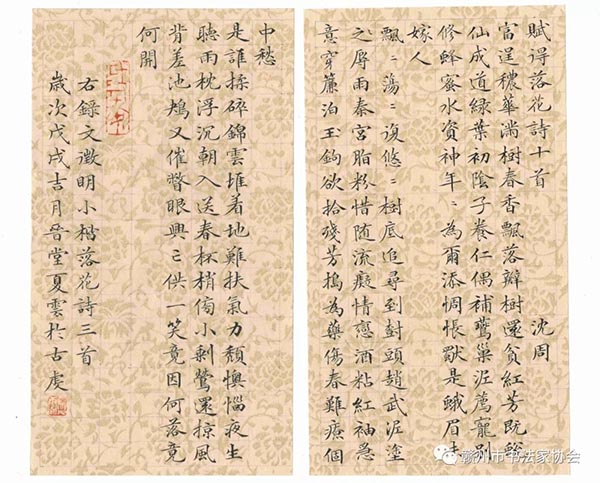 賦得落花詩十首 沈周
富逞穠華滿樹春香飄落瓣樹還貧紅芳既蛻
仙成道綠葉初陰子養仁偶補鶯巢泥薦寵別
修蜂蜜水資神年〻為爾添惆悵獃是蛾眉未
嫁人
飄〻蕩〻復悠〻樹底追尋到封頭趙武泥塗
之辱雨秦宮脂粉惜随流癡情戀酒粘紅袖急
意穿簾泊玉鉤欲拾殘芳搗為藥傷春難療個
中愁
是誰揉碎錦雲堆着地難扶氣力頹懊惱夜生
聽雨枕浮沉朝入送春杯梢傍小剩鶯還掠風
背差池鴆又催瞥眼興亡供一笑竟因何落竟
何開
右錄文徵明小楷落花詩三首
歲次戊戌吉月堂夏雲於古虔
赣州市书法家协会